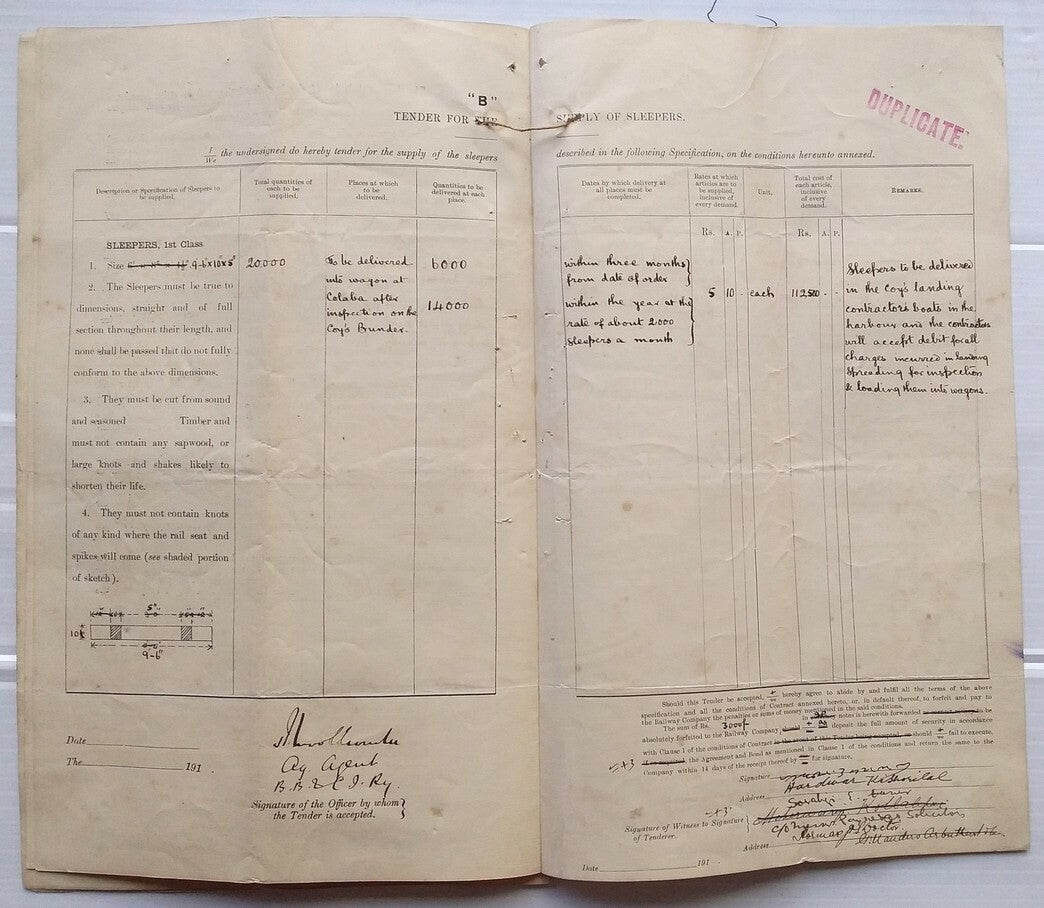 "B"
TENDER FOR THE SUPPLY OF SLEEPERS.
DUPLICATE.
I
We the undersigned do hereby tender for the supply of the sleepers described in the following Specification, on the conditions hereunto annexed.
Description or Specification of Sleepers to
be supplied.
Total quantities of
each to be
supplied.
Places at which
to be
delivered.
Quantities to be
delivered at each
place.
Dates by which delivery at
all places must be
completed.
Rates at which
articles are to
be supplied,
inclusive of
every demand.
Unit.
Total cost of
each article,
inclusive
of every
demand.
REMARKS.
Rs. A. P.
Rs. A. P.
SLEEPERS, 1st Class
1. Size 9-6"x10"x5"
2. The Sleepers must be true to
dimensions, straight and of full
section throughout their length, and
none shall be passed that do not fully
conform to the above dimensions.
3. They must be cut from sound
and seasoned Timber and
must not contain any sapwood, or
large knots and shakes likely to
shorten their life.
4. They must not contain knots
of any kind where the rail seat and
spikes will come (see shaded portion
of sketch).
5"
10"
9-6"
20,000
To be delivered
into wagon at
Colaba after
inspection on the
Coy's Bunder.
6000
14000
within three months
from date of order
within the year at the
rate of about 2000
sleepers a month
5 10 - each 112,500 - -
Sleepers to be delivered
in the Coy's landing
contractors boats in the
harbour and the contractors
will accept debit for all
charges incurred in landing
spreading for inspection
& loading them into wagons.
Date
The 191
Ag. Agent
B.B. & C.I. Ry.
Signature of the Officer by whom
the Tender is accepted.
Should this Tender be accepted, hereby agree to abide by and fulfil all the terms of the above
specification and all the conditions of Contract annexed hereto, or, in default thereof, to forfeit and pay to
the Railway Company the penalties or sums of money mentioned in the said conditions.
The sum of Rs. 3000/- in notes is herewith forwarded
absolutely forfeited to the Railway Company, should deposit the full amount of security in accordance
with Clause 1 of the conditions of Contract should fail to execute,
the Agreement and Bond as mentioned in Clause 1 of the conditions and return the same to the
Company within 14 days of the receipt thereof by for signature.
Signature
Address
Signature of Witness to Signature
of Tenderer.
Solicitors
Address
Date 191